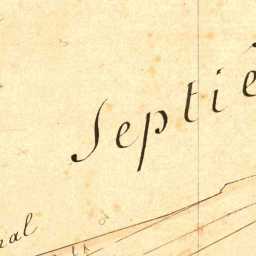 Septiè
nal